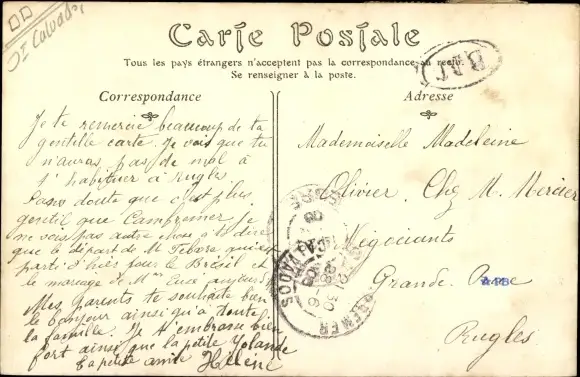 Calvados
Carte Postale
Tous les pays étrangers n'acceptent pas la correspondance au recto.
Se renseigner à la poste.
Correspondance
Je te remercie beaucoup de ta
gentille carte. Je vois que tu
n'auras pas de mal à
t'habituer à Rugles.
Sans doute que c'est plus
gentil que Campremer. Je
ne vois pas autre chose à te dire
que le départ de M. qui est
parti d'hier pour le Brésil et
le mariage de M aujourd'
Mes parents te souhaite bien
le bonjour ainsi qu'à toute
la famille. Je t'embrasse bien
fort ainsi que la petite Yolande
ta petite amie Hélène
Adresse
Mademoiselle Madeleine
Olivier. Chez M. Mercier
Négociants
Grande Rue
Rugles
CALVADOS